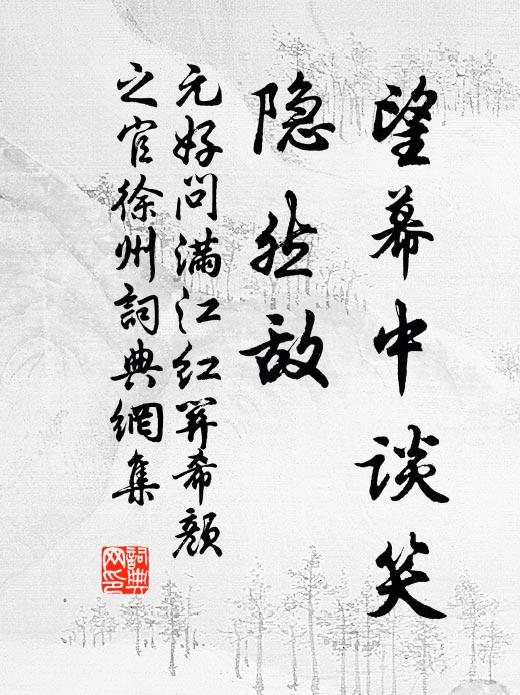 望幕中谈笑
隐然敌
元好问满江红羿希颜
之官徐州词典網集
詞典
网印